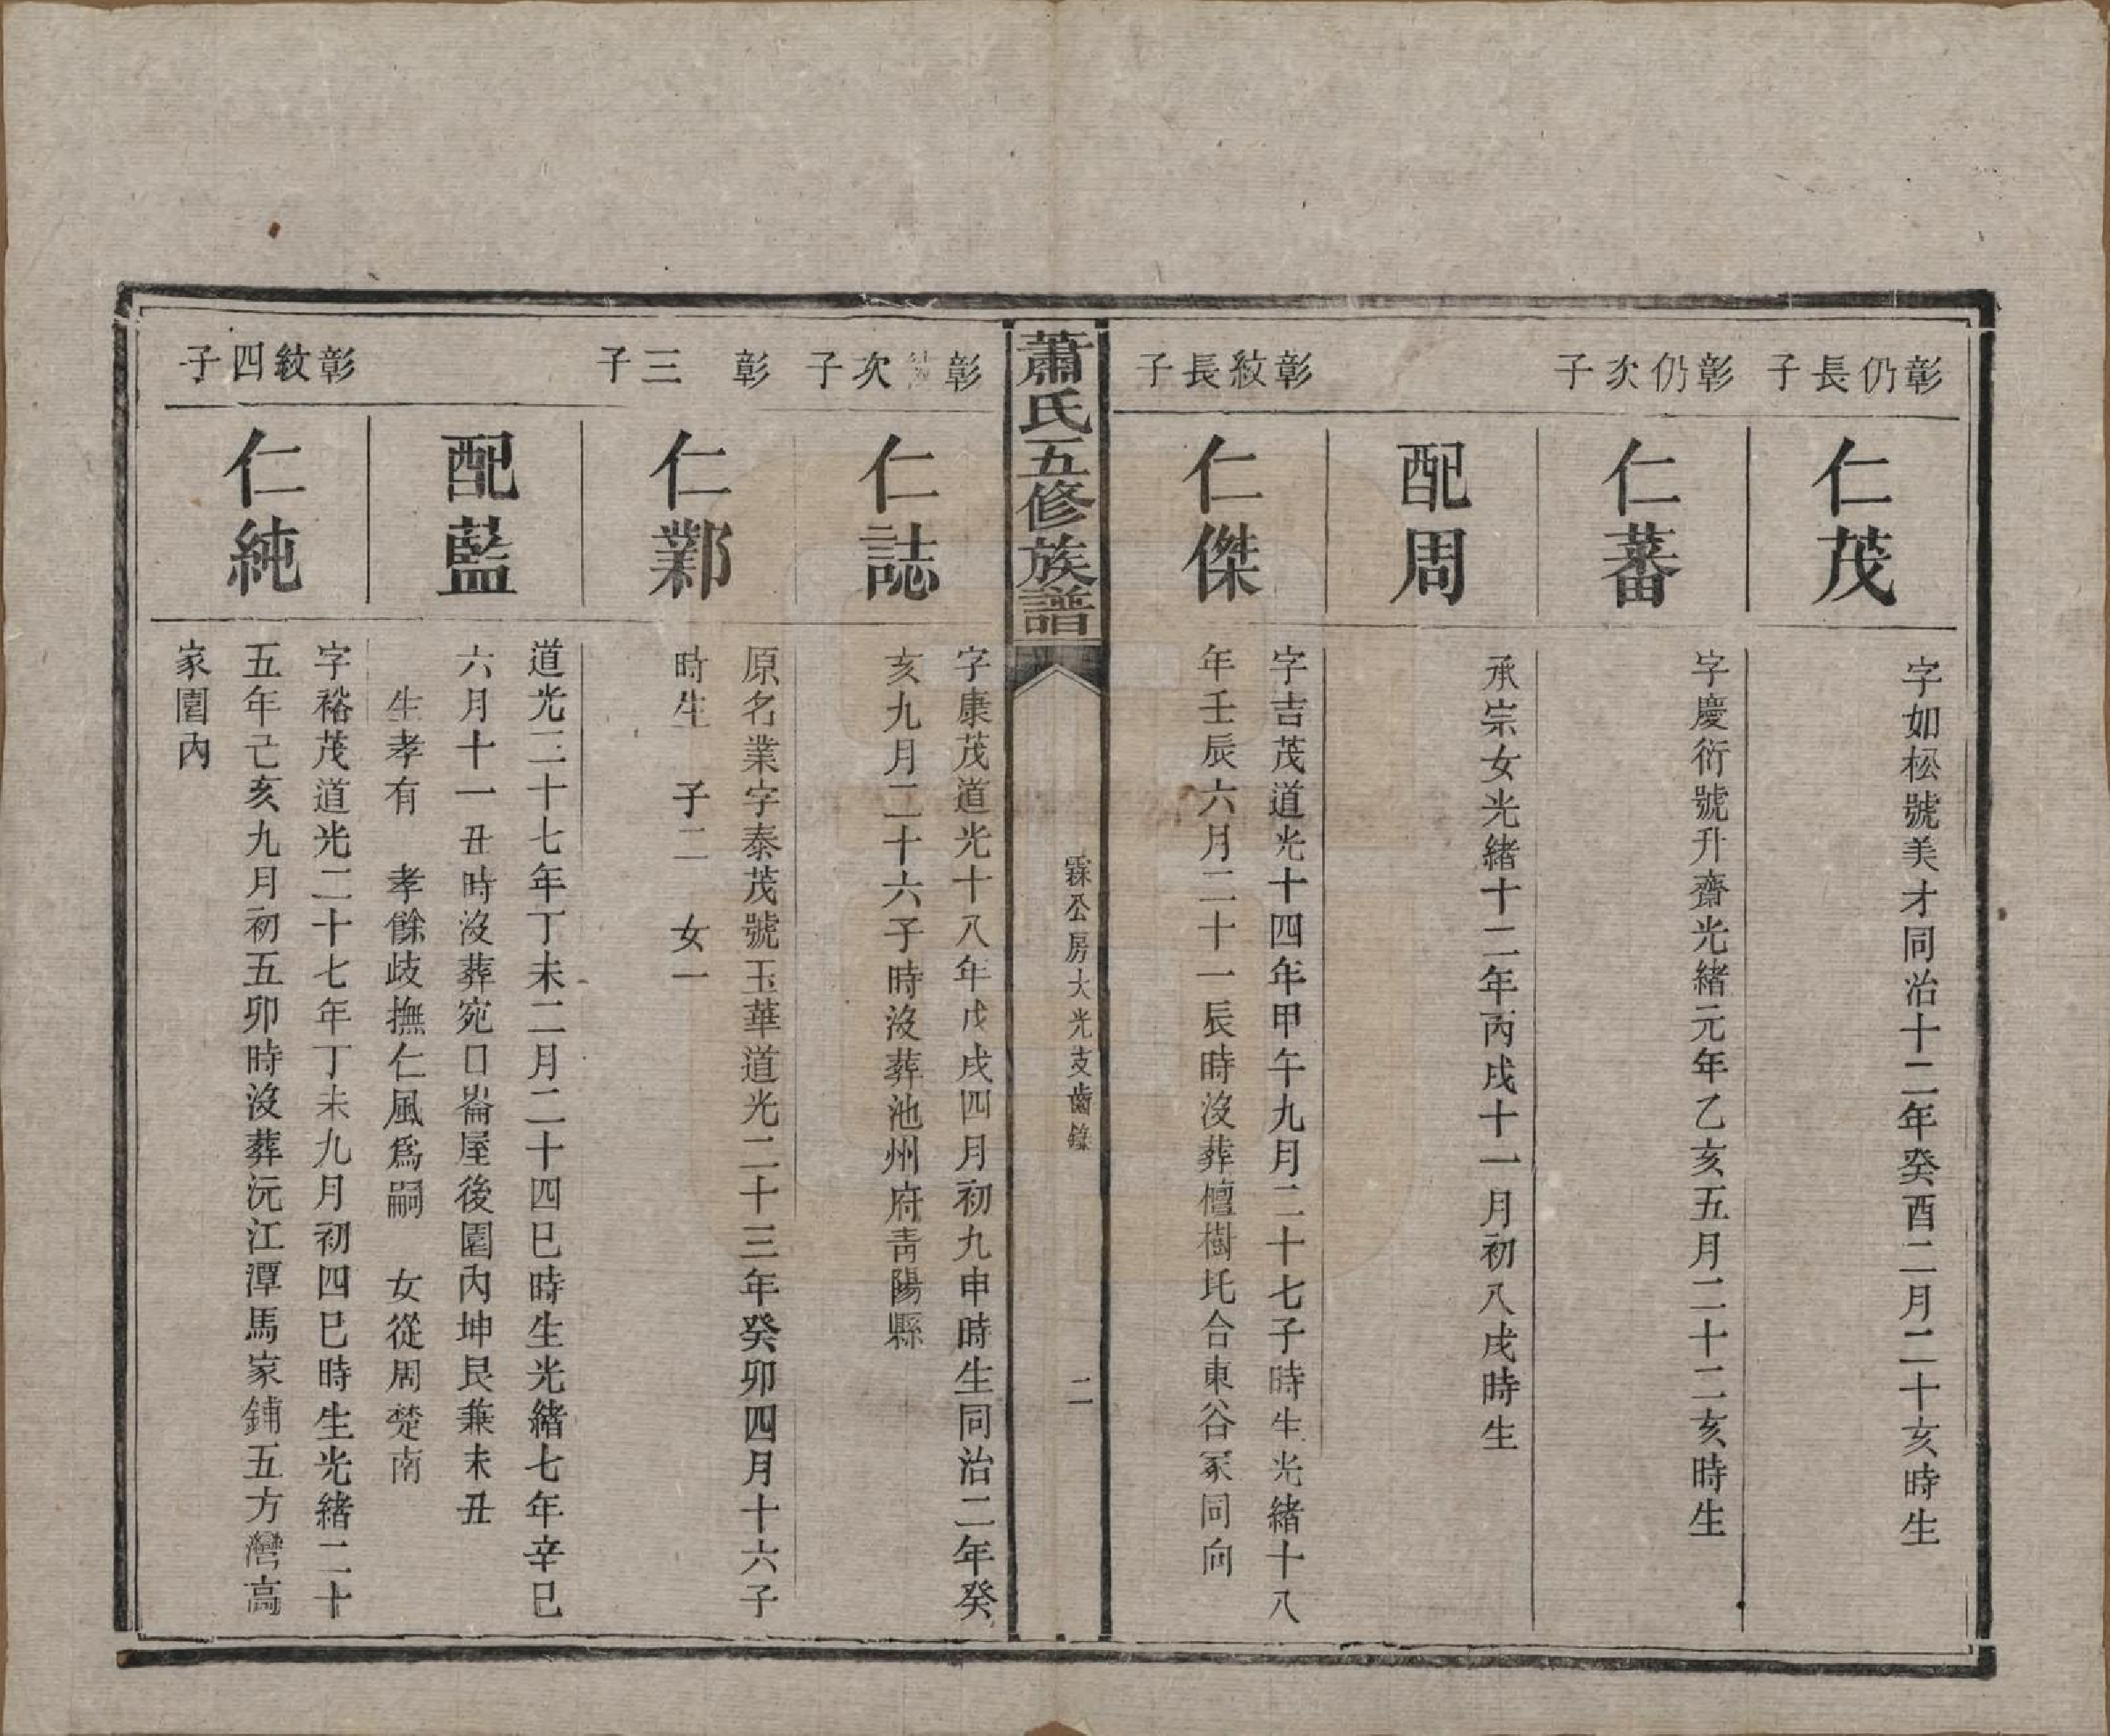 彰仍長子
仁茂
字如松號美才同治十二年癸酉二月二十亥時生
彰仍次子
仁蕃
字慶衍號升齋光緒元年乙亥五月二十二亥時生
配周
承宗女光緒十二年丙戌十一月初八戌時生
彰紋長子
仁傑
字吉茂道光十四年甲午九月二十七子時生光緒十八
年壬辰六月二十一辰時沒葬檀樹圫合東谷冢同向
蕭氏五修族譜
霖公房大光支齒錄
二
彰次子
仁誌
字康茂道光十八年戊戌四月初九申時生同治二年癸
亥九月二十六子時沒葬池州府青陽縣
彰三子
仁鄴
原名業字泰茂號玉華道光二十三年癸卯四月十六子
時生 子二 女一
配藍
道光二十七年丁未二月二十四巳時生光緒七年辛巳
六月十一丑時沒葬宛口崙屋後園內坤艮兼未丑
生孝有 孝餘歧撫仁風為嗣 女從周楚南
彰紋四子
仁純
字裕茂道光二十七年丁未九月初四巳時生光緒二十
五年己亥九月初五卯時沒葬沅江潭馬家鋪五方灣高
家園內